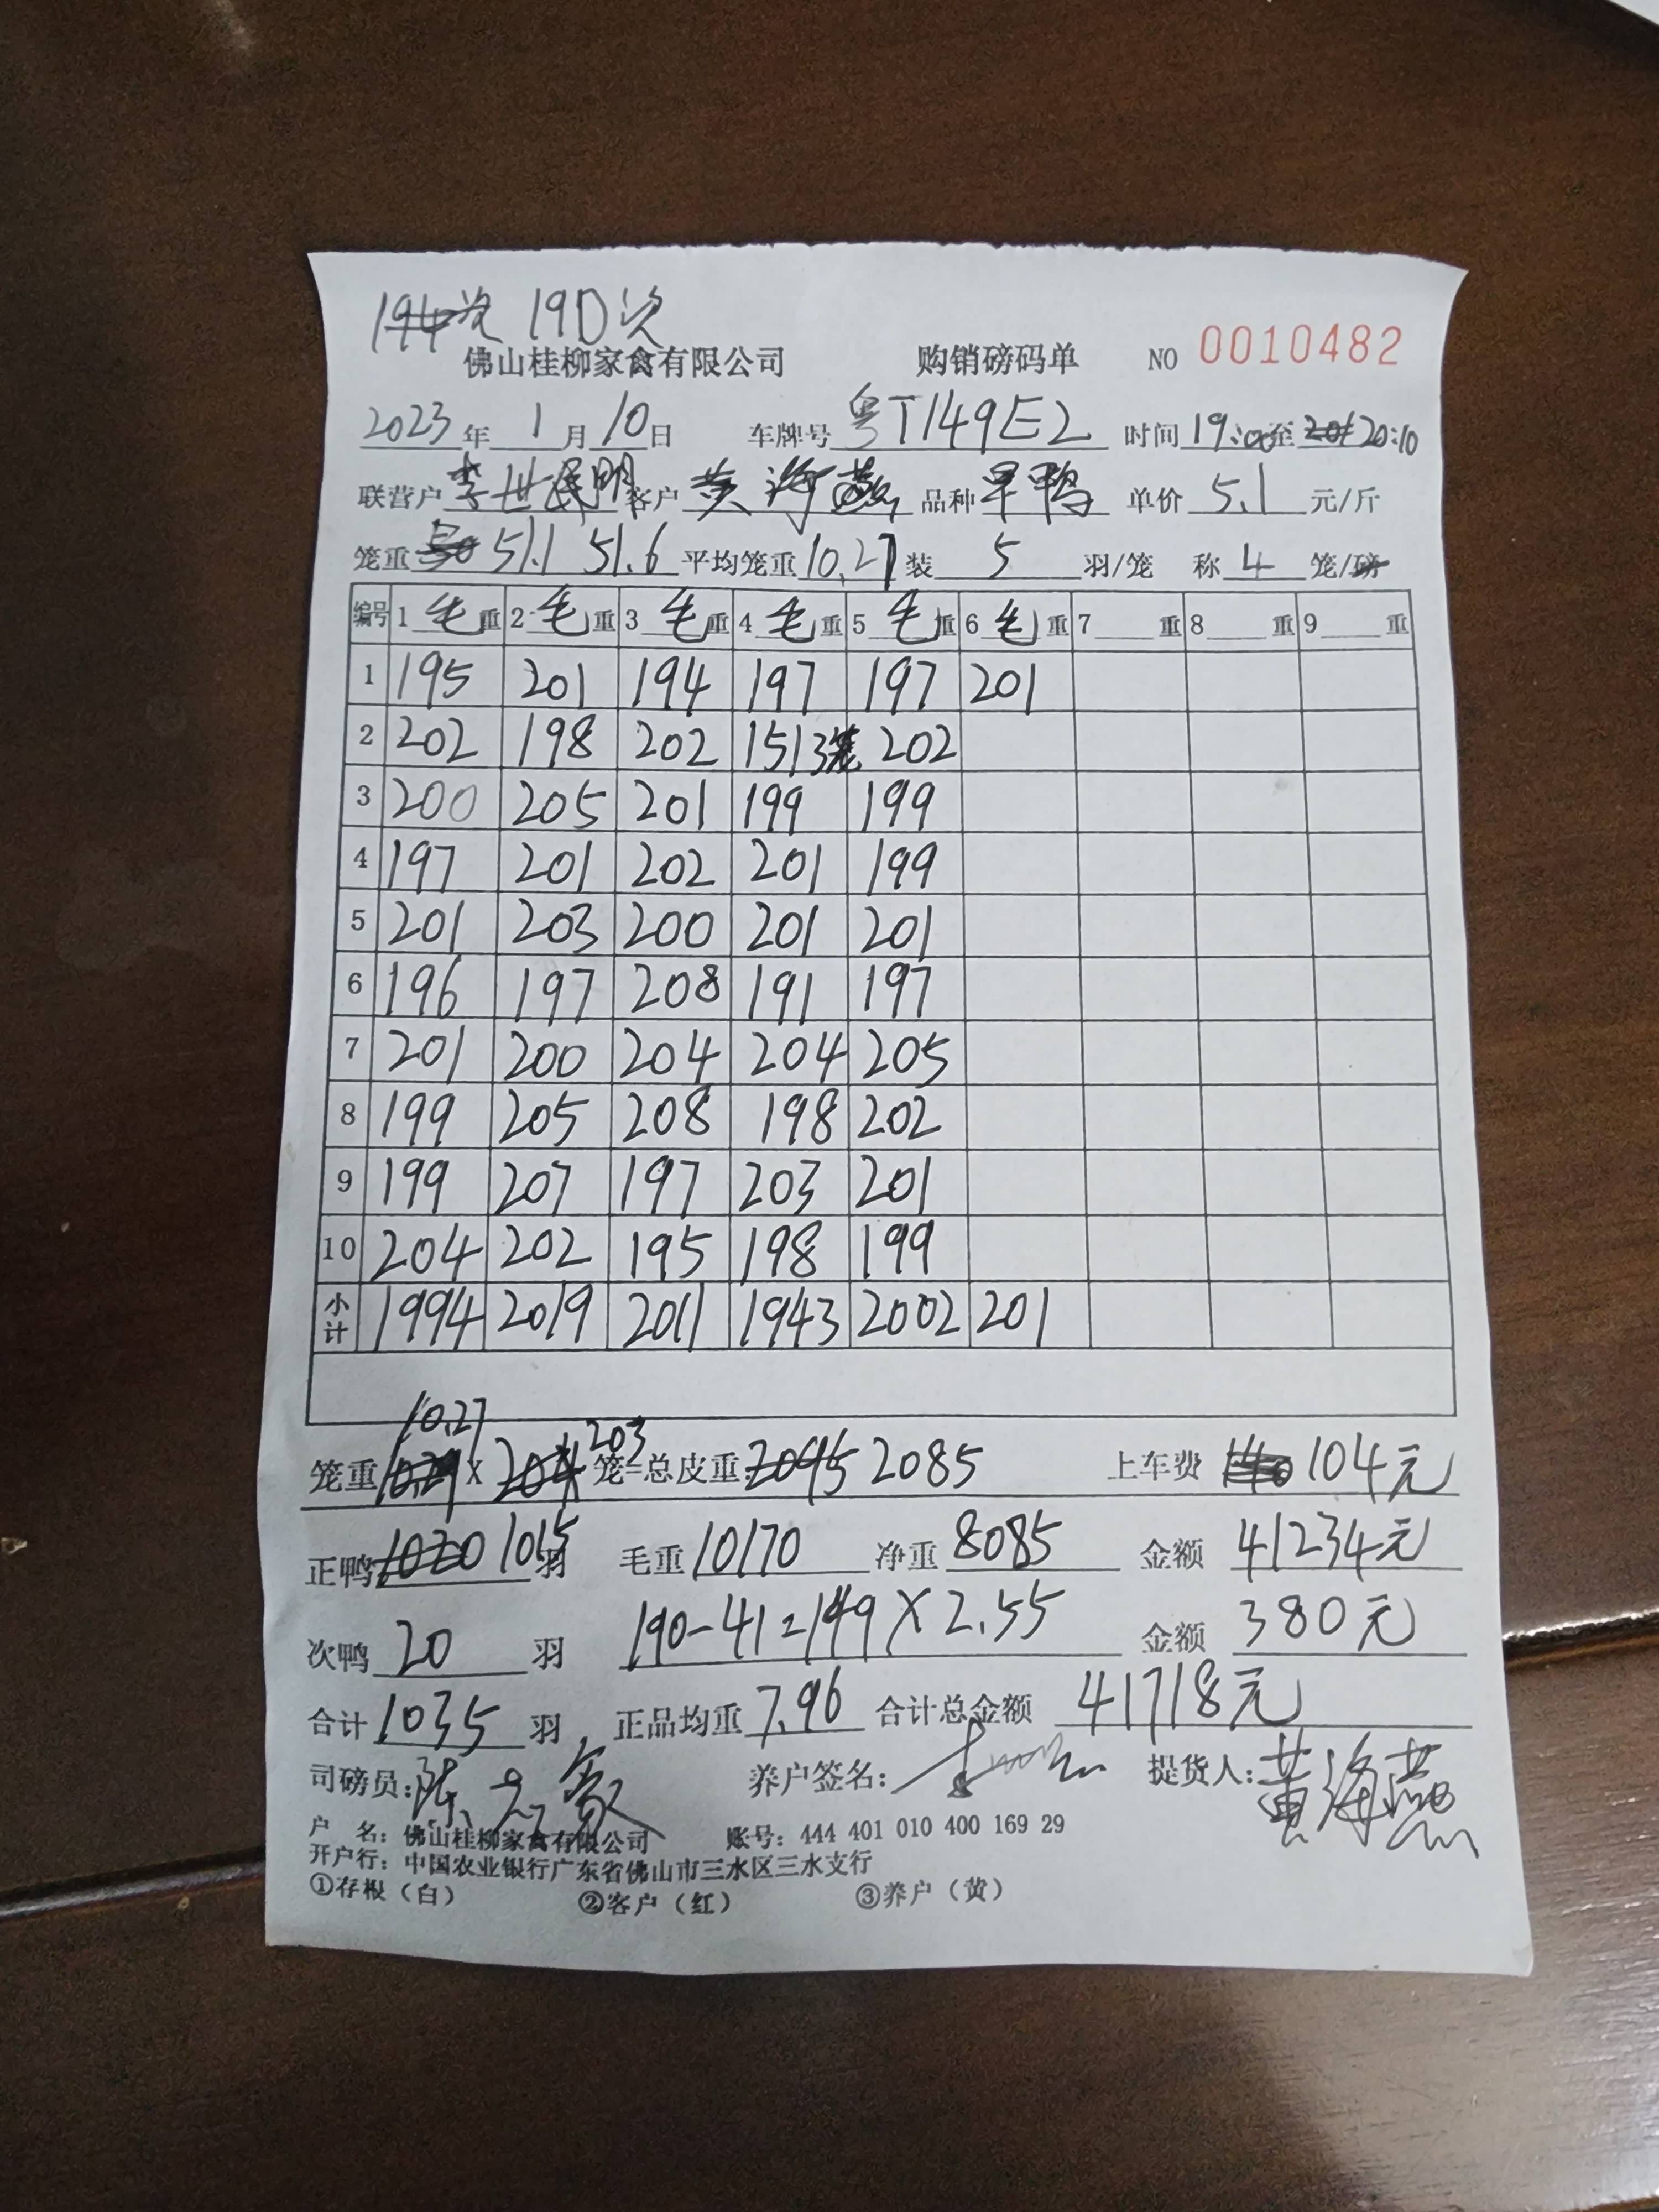 190次
佛山桂柳家禽有限公司 购销磅码单 NO 0010482
2023年1月10日 车牌号 粤T149E2 时间 19:00至 20:10
联营户 李世明 客户 黄海燕 品种 旱鸭 单价 5.1 元/斤
笼重 51.1 51.6 平均笼重 10.27 装 5 羽/笼 称 4 笼/磅
编号 1 毛 重 2 毛 重 3 毛 重 4 毛 重 5 毛 重 6 毛 重 7 重 8 重 9 重
1 195 201 194 197 197 201
2 202 198 202 151 3笼 202
3 200 205 201 199 199
4 197 201 202 201 199
5 201 203 200 201 201
6 196 197 208 191 197
7 201 200 204 204 205
8 199 205 208 198 202
9 199 207 197 203 201
10 204 202 195 198 199
小计 1994 2019 2011 1943 2002 201
笼重 10.27 X 203 笼=总皮重 2085 上车费 104元
正鸭 1015 羽 毛重 10170 净重 8085 金额 41234元
次鸭 20 羽 190-41=149X2.55 金额 380元
合计 1035 羽, 正品均重 7.96 合计总金额 41718元
司磅员: 养户签名: 提货人: 黄海燕
户 名: 佛山桂柳家禽有限公司 账号: 444 401 010 400 169 29
开户行: 中国农业银行广东省佛山市三水区三水支行
①存根（白） ②客户（红） ③养户（黄）